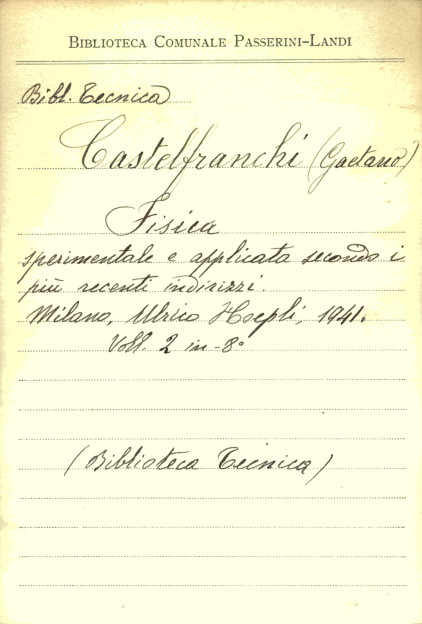 BIBLIOTECA COMUNALE PASSERINI-LANDI
Bibl. Tecnica
Castelfranchi (Gaetano)
Fisica
sperimentale e applicata secondo i
più recenti indirizzi.
Milano, Ulrico Hoepli, 1941.
Voll. 2 in-8°
(Biblioteca Tecnica)